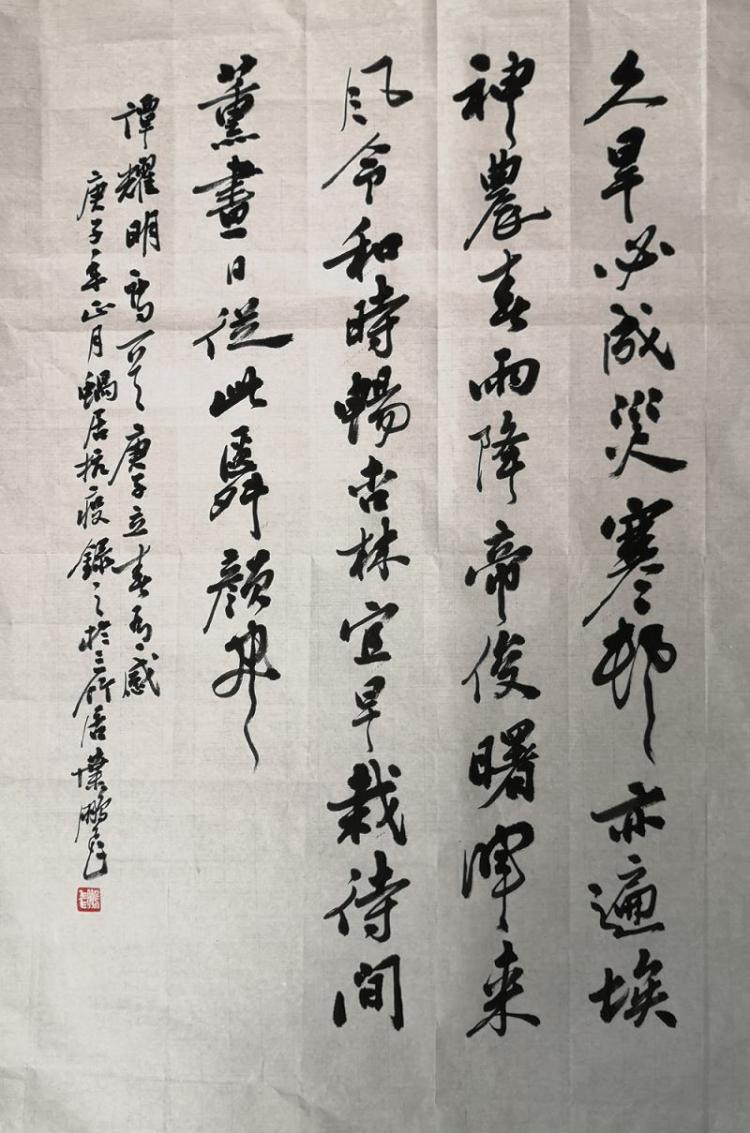 久旱必成災寒邨亦遍埃
神農春雨降帝俊曙暉来
風令和時暢杏林宜早栽待間
薰晝日從此舜顏開
譚耀明 庚子立春有感
庚子年正月蝸居抗疫錄之於三竹居 鵬